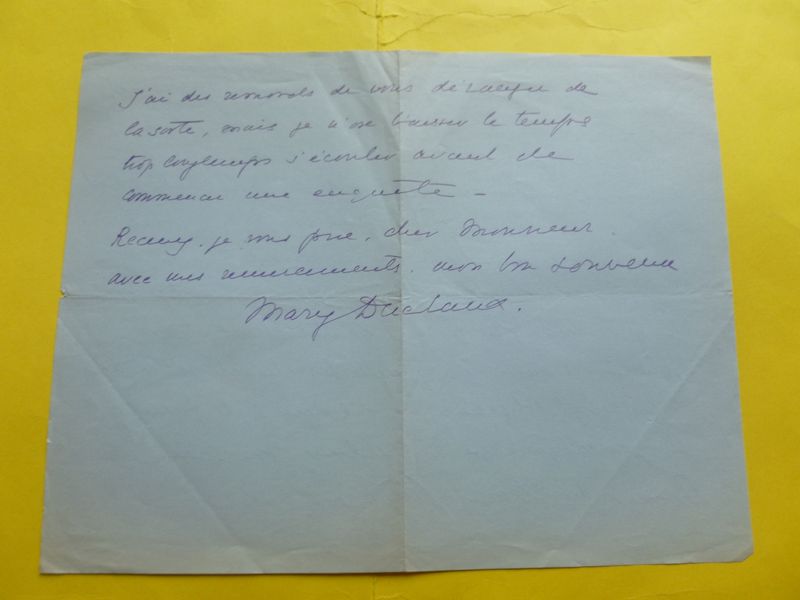 J'ai des remords de vous déranger de
la sorte, mais je n'ose laisser le temps
trop longtemps s'écouler avant de
commencer une enquête –
Recevez, je vous prie, cher Monsieur,
avec mes remerciements, mon bon souvenir
Mary Duclaux.